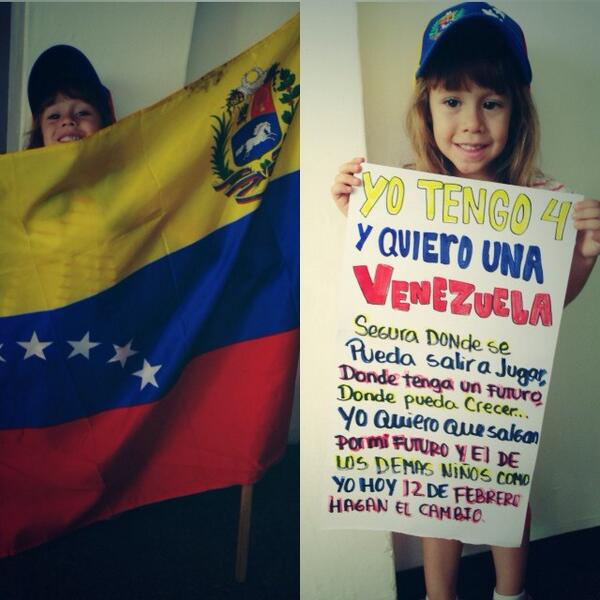 YO TENGO 4
Y QUIERO UNA
VENEZUELA
Segura DONde se
Pueda salir a Jugar,
Donde tenga un Futuro,
Donde pueda Crecer...
YO Quiero Que salgan
por mi FUTURO Y El DE
LOS DEMAS NIÑOS COMO
YO HOY 12 DE FEBRERO
HAGAN EL CAMBIO.